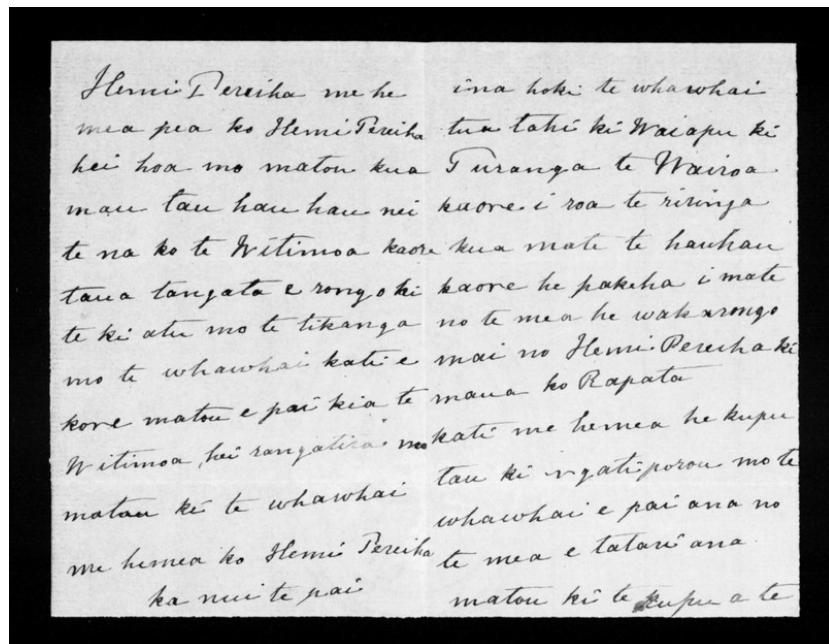 Hemi Pereiha me he
mea pea ko Hemi Pereiha
hei hoa mo matou kua
mau tau hau hau nei
te na ko te Witimoa kaore
taua tangata e rongo ki
te ki atu mo te tikanga
mo te whawhai kati e
kore matou e pai kia te
Witimoa, hei rangatira mo
matou ki te whawhai
me hemea ko Hemi Pereiha
ka nui te pai
ina hoki te whawhai
tua tahi ki Waiapu ki
Turanga te Wairoa
kaore i roa te riringa
kua mate te hauhau
kaore he pakeha i mate
no te mea he wakarongo
mai no Hemi Pereiha ki
maua ko Rapata
kati me hemea he kupu
tau ki ngatiporou mo te
whawhai e pai ana no
te mea e tatari ana
matou ki te kupu a te